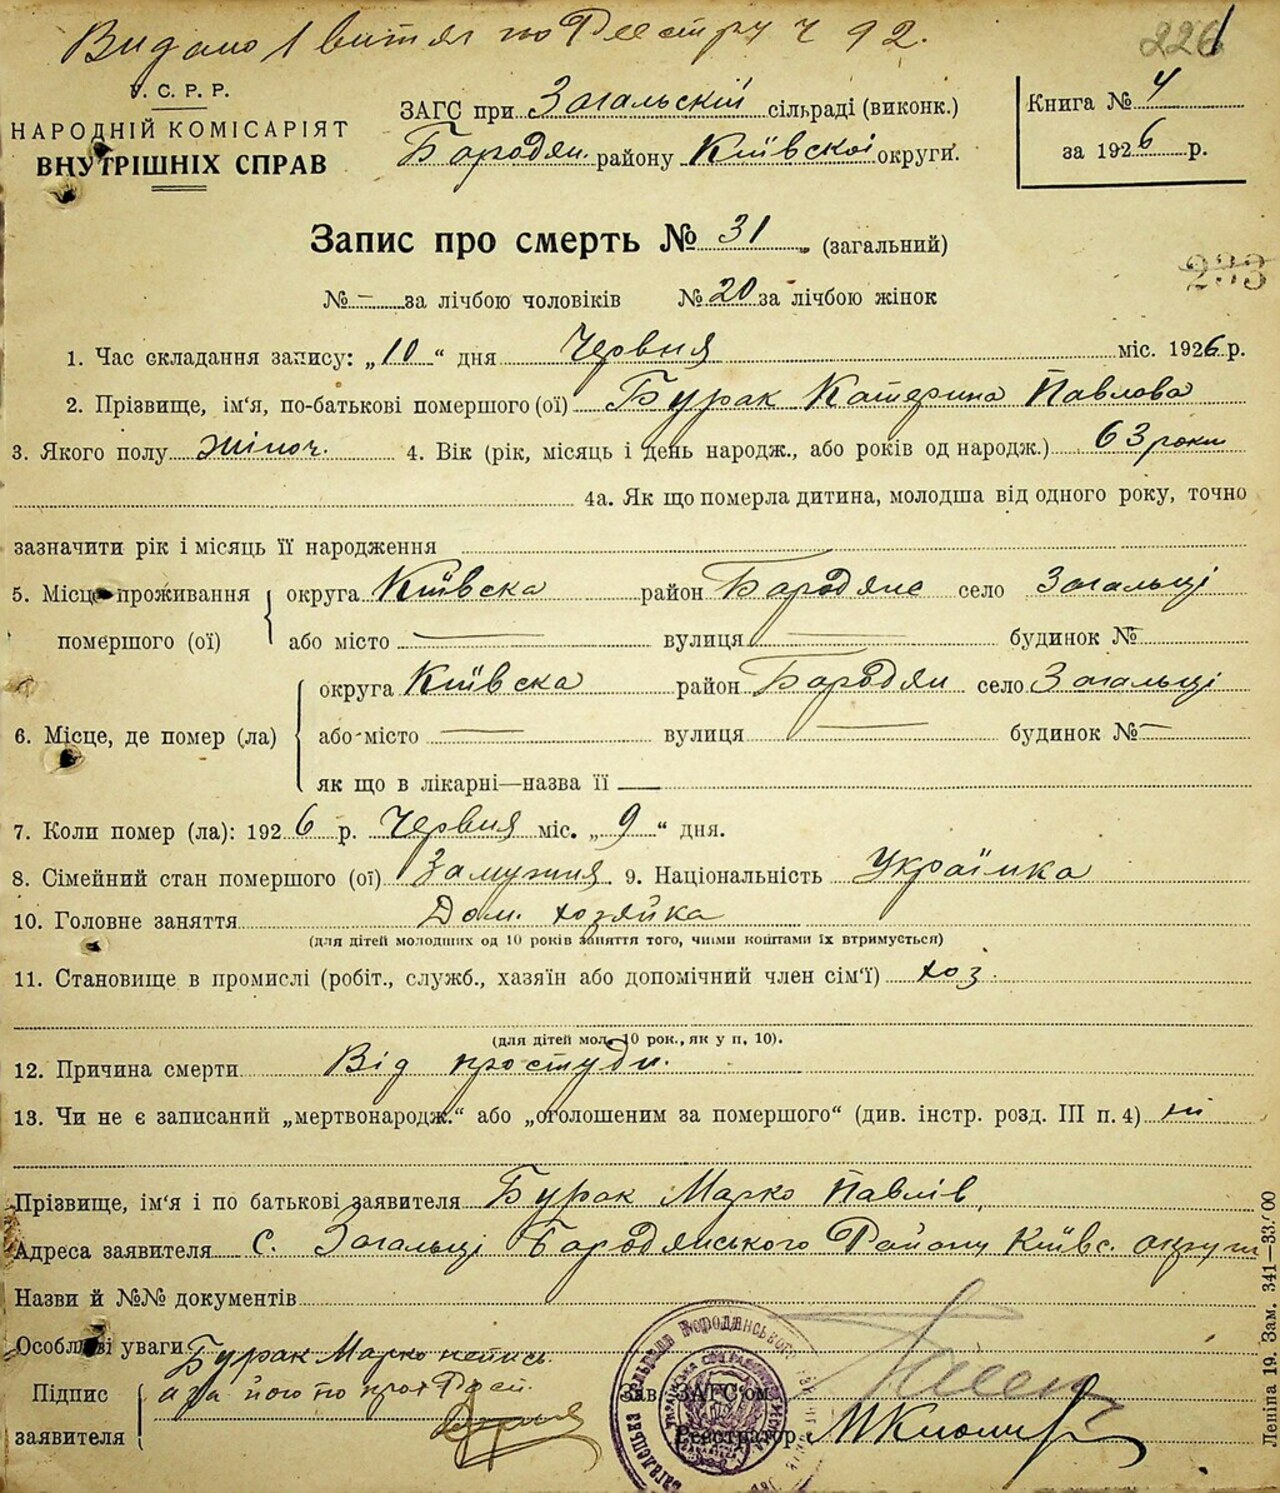 Видано 1 витяг по Реєстру ч 92.
226
У. С. Р. Р.
НАРОДНІЙ КОМІСАРІЯТ
ВНУТРІШНІХ СПРАВ
ЗАГС при Загальскій сільраді (виконк.)
Бородян. району Київскоі округи.
Книга № 4
за 1926 р.
Запис про смерть № 31 (загальний)
233
№ — за лічбою чоловіків № 20 за лічбою жінок
1. Час складання запису: „10“ дня Червня міс. 1926 р.
2. Прізвище, ім‘я, по-батькові помершого (ої) Бурак Катерина Павлова
3. Якого полу жіноч. 4. Вік (рік, місяць і день народж., або років од народж.) 63 роки
4а. Як що померла дитина, молодша від одного року, точно
зазначити рік і місяць її народження
5. Місце проживання помершого (ої) округа Київска район Бородянс село Загальці
або місто — вулиця — будинок №
6. Місце, де помер (ла) округа Київска район Бородян село Загальці
або місто — вулиця — будинок № —
як що в лікарні—назва її —
7. Коли помер (ла): 1926 р. Червня міс. „9“ дня.
8. Сімейний стан помершого (ої) Замужня 9. Національність Українка
10. Головне заняття Дом. хозяйка
(для дітей молодших од 10 років заняття того, чиїми коштами їх втримується)
11. Становище в промислі (робіт., служб., хазяїн або допомічний член сім‘ї) хоз.
(для дітей мол. 10 рок., як у п. 10).
12. Причина смерти Від простуди.
13. Чи не є записаний „мертвонародж.“ або „оголошеним за помершого“ (див. інстр. розд. III п. 4) ні
Прізвище, ім‘я і по батькові заявителя Бурак Марко Павлів,
Адреса заявителя с. Загальці Бородянського Району Київс. округи
Назви й №№ документів
Особливі уваги
Підпис заявителя Бурак Марко непись.
а за його по
Зав. ЗАГС‘ом
Реєстратор
Леніна 19. Зам. 341—33.000